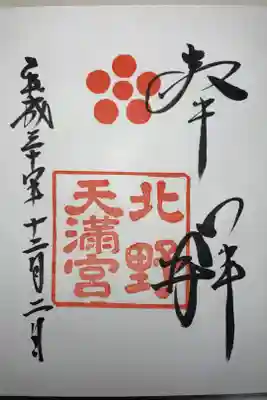 奉拝
北野
天満宮
平成三十年十二月二日